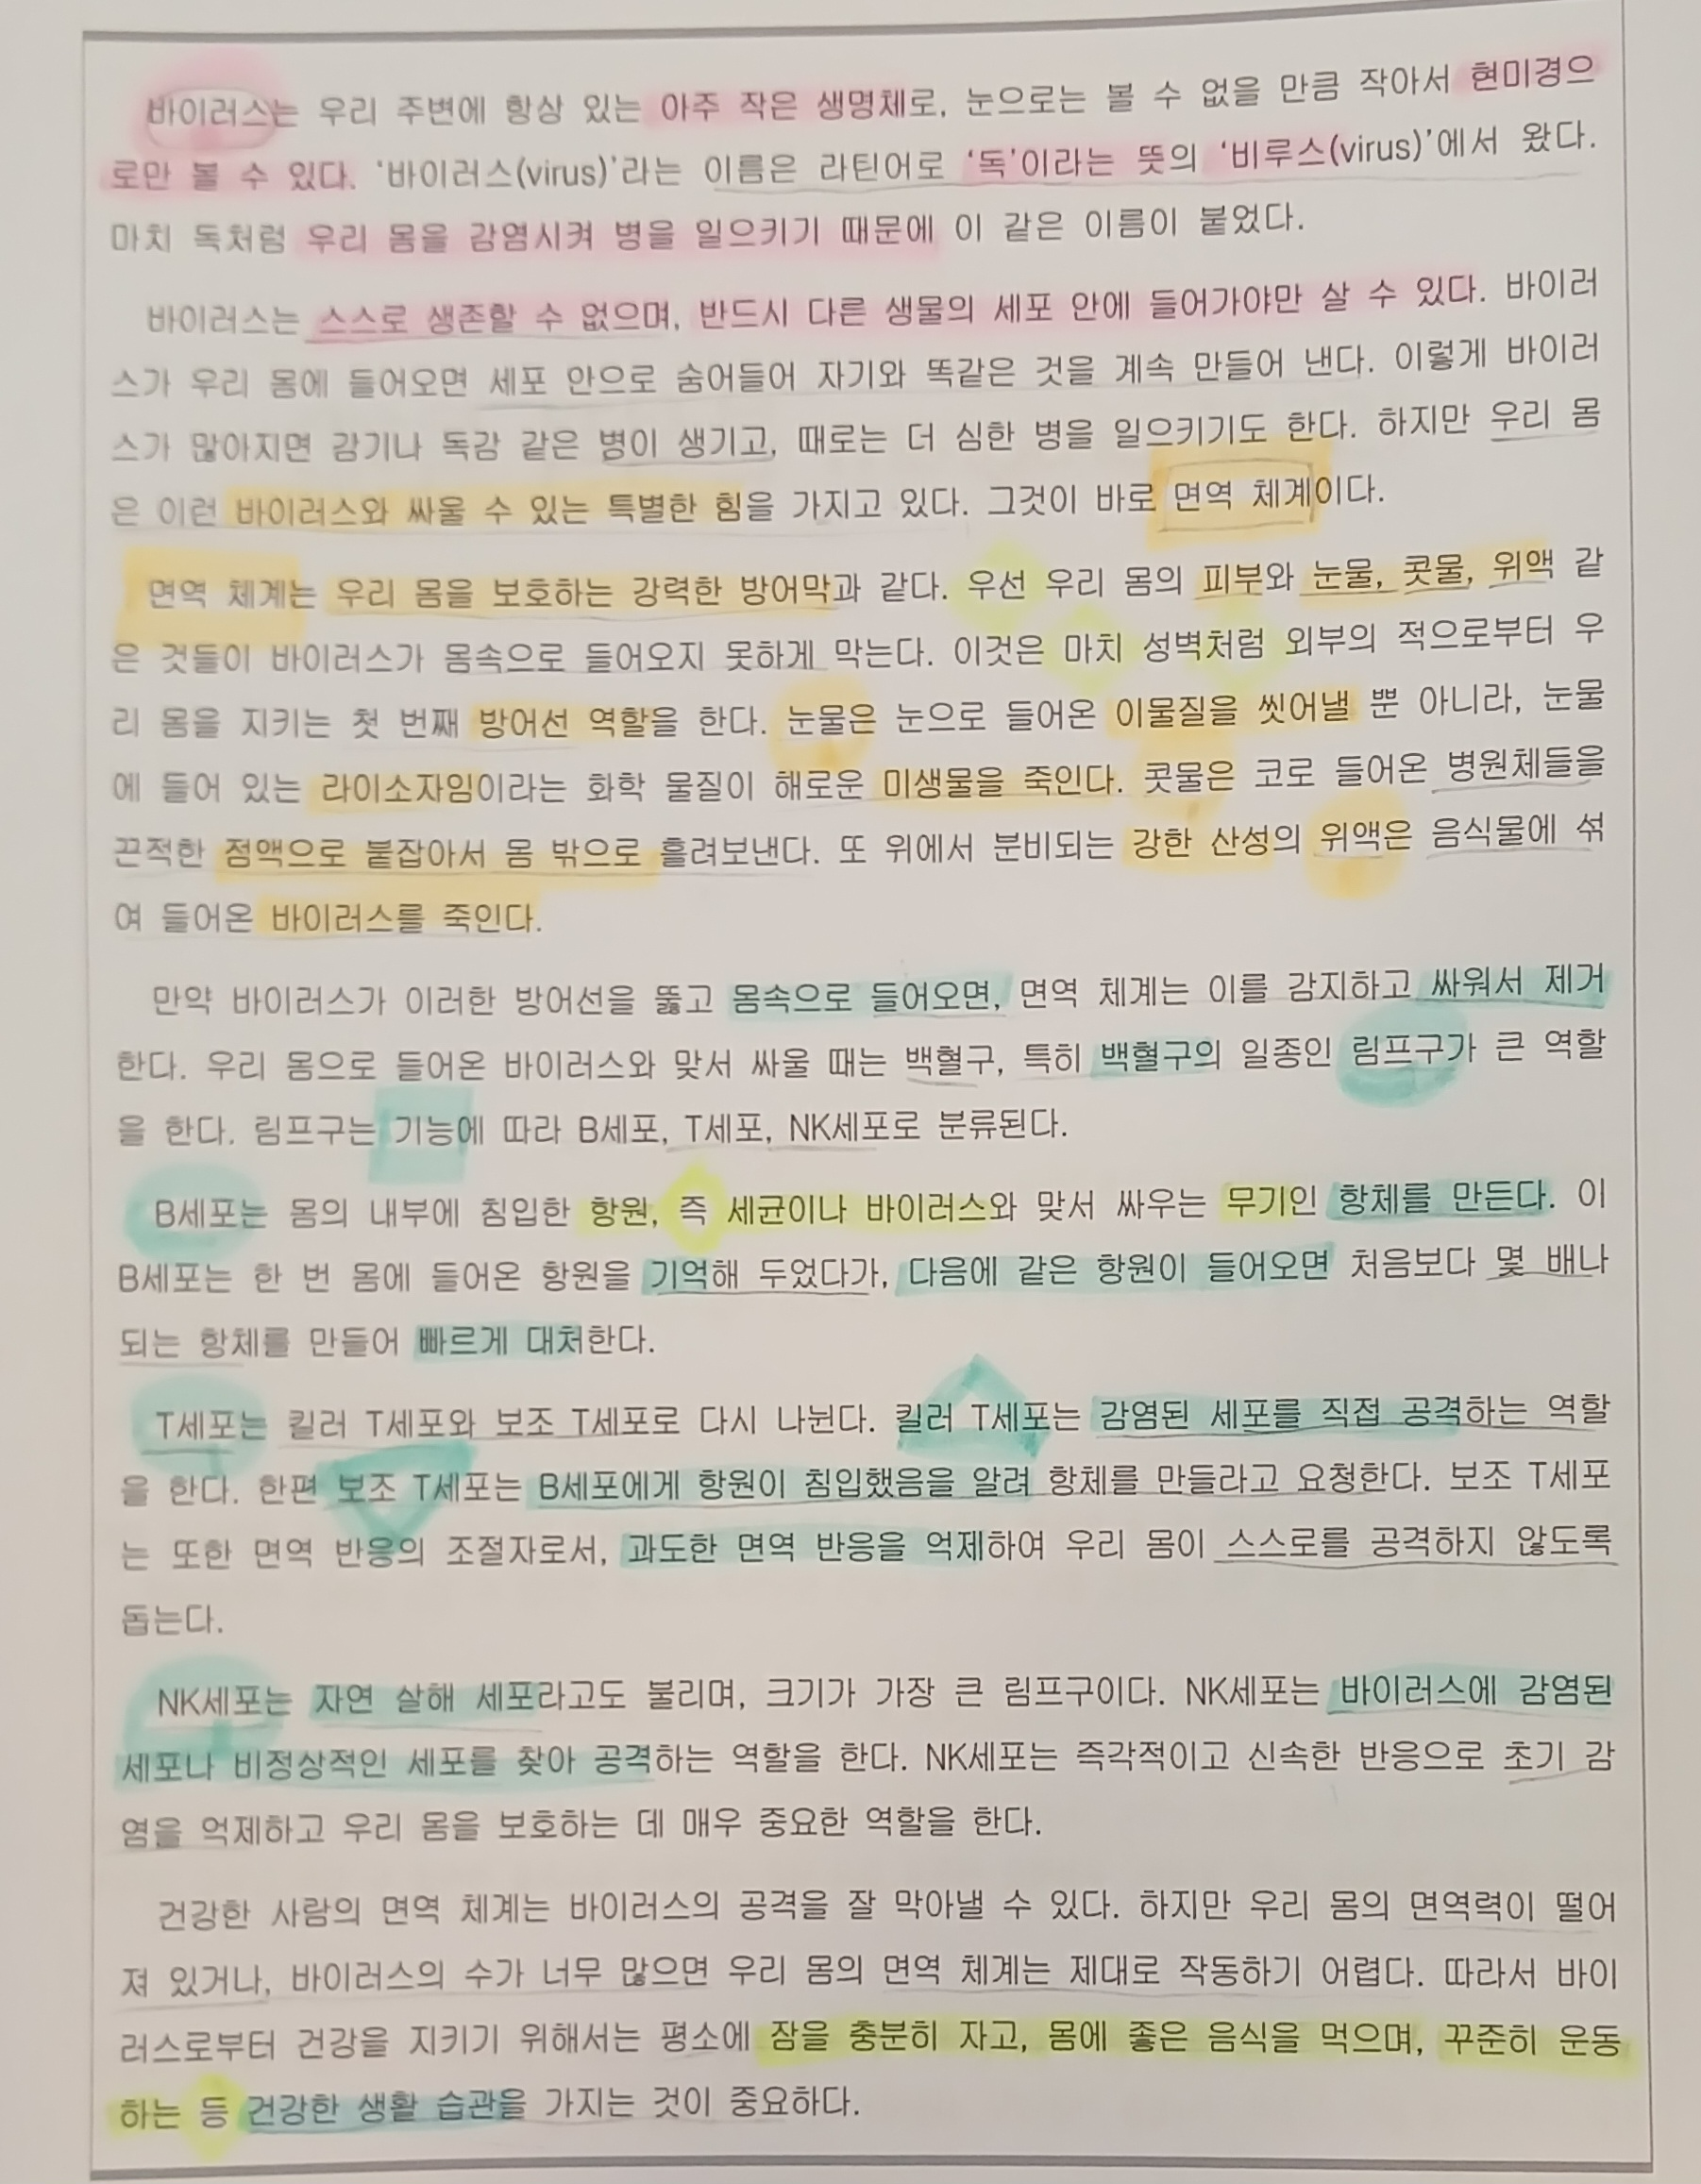 바이러스는 우리 주변에 항상 있는 아주 작은 생명체로, 눈으로는 볼 수 없을 만큼 작아서 현미경으
로만 볼 수 있다. ‘바이러스(virus)’라는 이름은 라틴어로 ‘독’이라는 뜻의 ‘비루스(virus)’에서 왔다.
마치 독처럼 우리 몸을 감염시켜 병을 일으키기 때문에 이 같은 이름이 붙었다.
바이러스는 스스로 생존할 수 없으며, 반드시 다른 생물의 세포 안에 들어가야만 살 수 있다. 바이러
스가 우리 몸에 들어오면 세포 안으로 숨어들어 자기와 똑같은 것을 계속 만들어 낸다. 이렇게 바이러
스가 많아지면 감기나 독감 같은 병이 생기고, 때로는 더 심한 병을 일으키기도 한다. 하지만 우리 몸
은 이런 바이러스와 싸울 수 있는 특별한 힘을 가지고 있다. 그것이 바로 면역 체계이다.
면역 체계는 우리 몸을 보호하는 강력한 방어막과 같다. 우선 우리 몸의 피부와 눈물, 콧물, 위액 같
은 것들이 바이러스가 몸속으로 들어오지 못하게 막는다. 이것은 마치 성벽처럼 외부의 적으로부터 우
리 몸을 지키는 첫 번째 방어선 역할을 한다. 눈물은 눈으로 들어온 이물질을 씻어낼 뿐 아니라, 눈물
에 들어 있는 라이소자임이라는 화학 물질이 해로운 미생물을 죽인다. 콧물은 코로 들어온 병원체들을
끈적한 점액으로 붙잡아서 몸 밖으로 흘려보낸다. 또 위에서 분비되는 강한 산성의 위액은 음식물에 섞
여 들어온 바이러스를 죽인다.
만약 바이러스가 이러한 방어선을 뚫고 몸속으로 들어오면, 면역 체계는 이를 감지하고 싸워서 제거
한다. 우리 몸으로 들어온 바이러스와 맞서 싸울 때는 백혈구, 특히 백혈구의 일종인 림프구가 큰 역할
을 한다. 림프구는 기능에 따라 B세포, T세포, NK세포로 분류된다.
B세포는 몸의 내부에 침입한 항원, 즉 세균이나 바이러스와 맞서 싸우는 무기인 항체를 만든다. 이
B세포는 한 번 몸에 들어온 항원을 기억해 두었다가, 다음에 같은 항원이 들어오면 처음보다 몇 배나
되는 항체를 만들어 빠르게 대처한다.
T세포는 킬러 T세포와 보조 T세포로 다시 나뉜다. 킬러 T세포는 감염된 세포를 직접 공격하는 역할
을 한다. 한편 보조 T세포는 B세포에게 항원이 침입했음을 알려 항체를 만들라고 요청한다. 보조 T세포
는 또한 면역 반응의 조절자로서, 과도한 면역 반응을 억제하여 우리 몸이 스스로를 공격하지 않도록
돕는다.
NK세포는 자연 살해 세포라고도 불리며, 크기가 가장 큰 림프구이다. NK세포는 바이러스에 감염된
세포나 비정상적인 세포를 찾아 공격하는 역할을 한다. NK세포는 즉각적이고 신속한 반응으로 초기 감
염을 억제하고 우리 몸을 보호하는 데 매우 중요한 역할을 한다.
건강한 사람의 면역 체계는 바이러스의 공격을 잘 막아낼 수 있다. 하지만 우리 몸의 면역력이 떨어
져 있거나, 바이러스의 수가 너무 많으면 우리 몸의 면역 체계는 제대로 작동하기 어렵다. 따라서 바이
러스로부터 건강을 지키기 위해서는 평소에 잠을 충분히 자고, 몸에 좋은 음식을 먹으며, 꾸준히 운동
하는 등 건강한 생활 습관을 가지는 것이 중요하다.